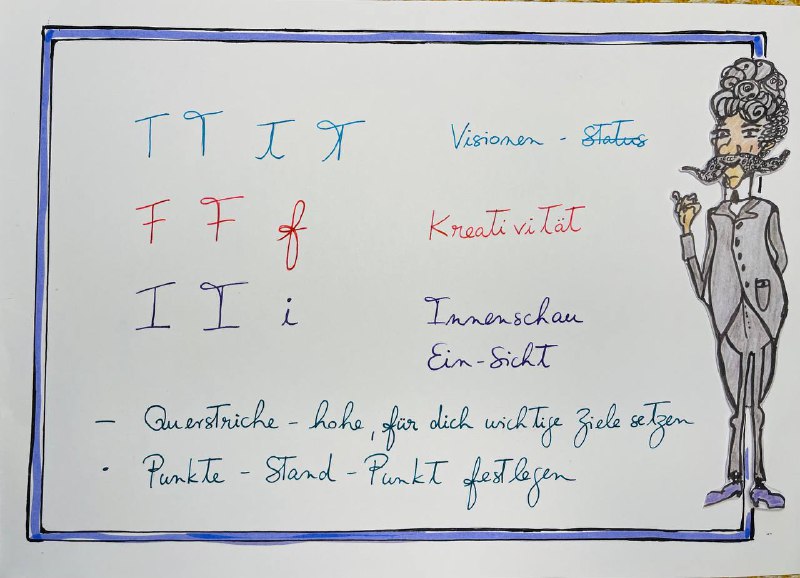 T T T T Visionen - Status
F F f Kreativität
I I i Innenschau
Ein-Sicht
— Querstriche - hohe, für dich wichtige Ziele setzen
· Punkte - Stand - Punkt festlegen